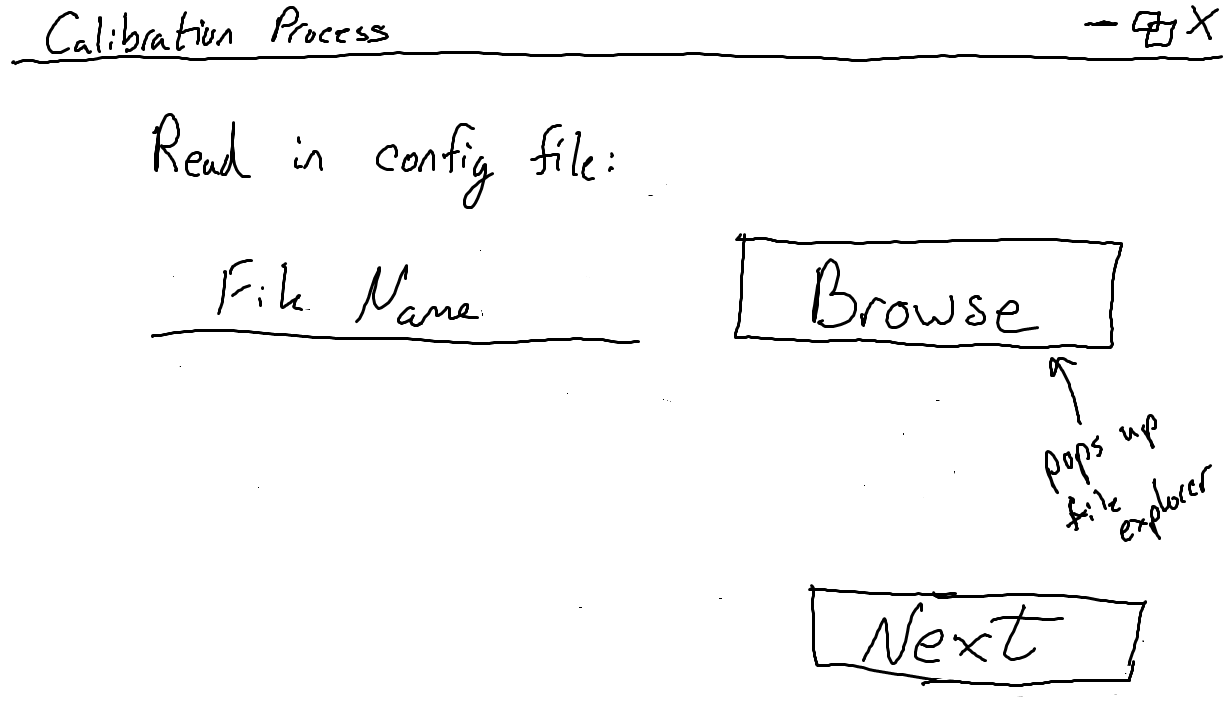 Calibration Process — X
Read in config file:
File Name
Browse
pops up
file explorer
Next